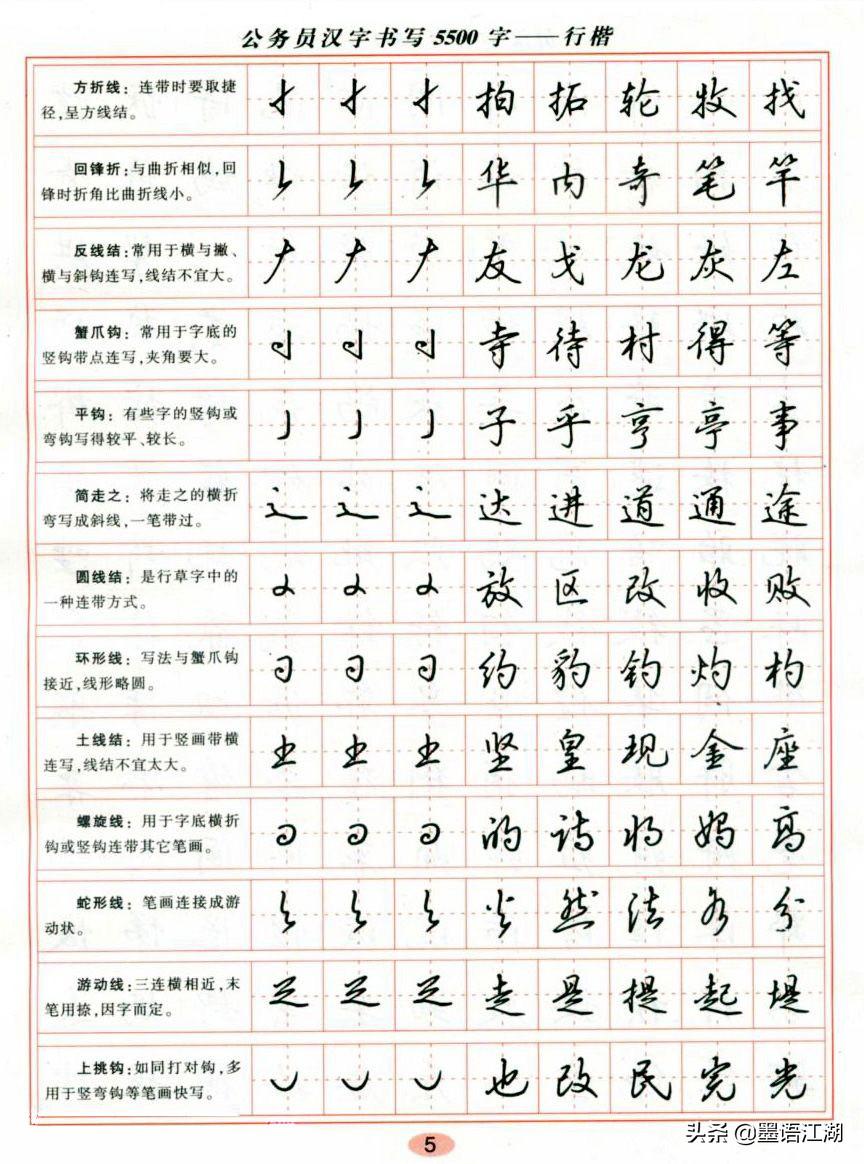 公务员汉字书写 5500 字——行楷
方折线：连带时要取捷
径,呈方线结。
拍 拓 轮 牧 找
回锋折:与曲折相似,回
锋时折角比曲折线小。
华 内 奇 笔 竿
反线结:常用于横与撇、
横与斜钩连写,线结不宜大。
友 戈 龙 灰 左
蟹爪钩：常用于字底的
竖钩带点连写,夹角要大。
寺 待 村 得 等
平钩：有些字的竖钩或
弯钩写得较平、较长。
子 乎 亨 亭 事
简走之：将走之的横折
弯写成斜线,一笔带过。
达 进 道 通 途
圆线结：是行草字中的
一种连带方式。
放 区 改 收 败
环形线：写法与蟹爪钩
接近,线形略圆。
约 豹 钓 灼 杓
土线结：用于竖画带横
连写,线结不宜太大。
坚 皇 现 金 座
螺旋线：用于字底横折
钩或竖钩连带其它笔画。
的 诗 将 妈 高
蛇形线：笔画连接成游
动状。
然 法 分
游动线:三连横相近,末
笔用捺,因字而定。
走 是 提 起 堤
上挑钩:如同打对钩,多
用于竖弯钩等笔画快写。
也 改 民 完 光
5
头条 @墨语江湖